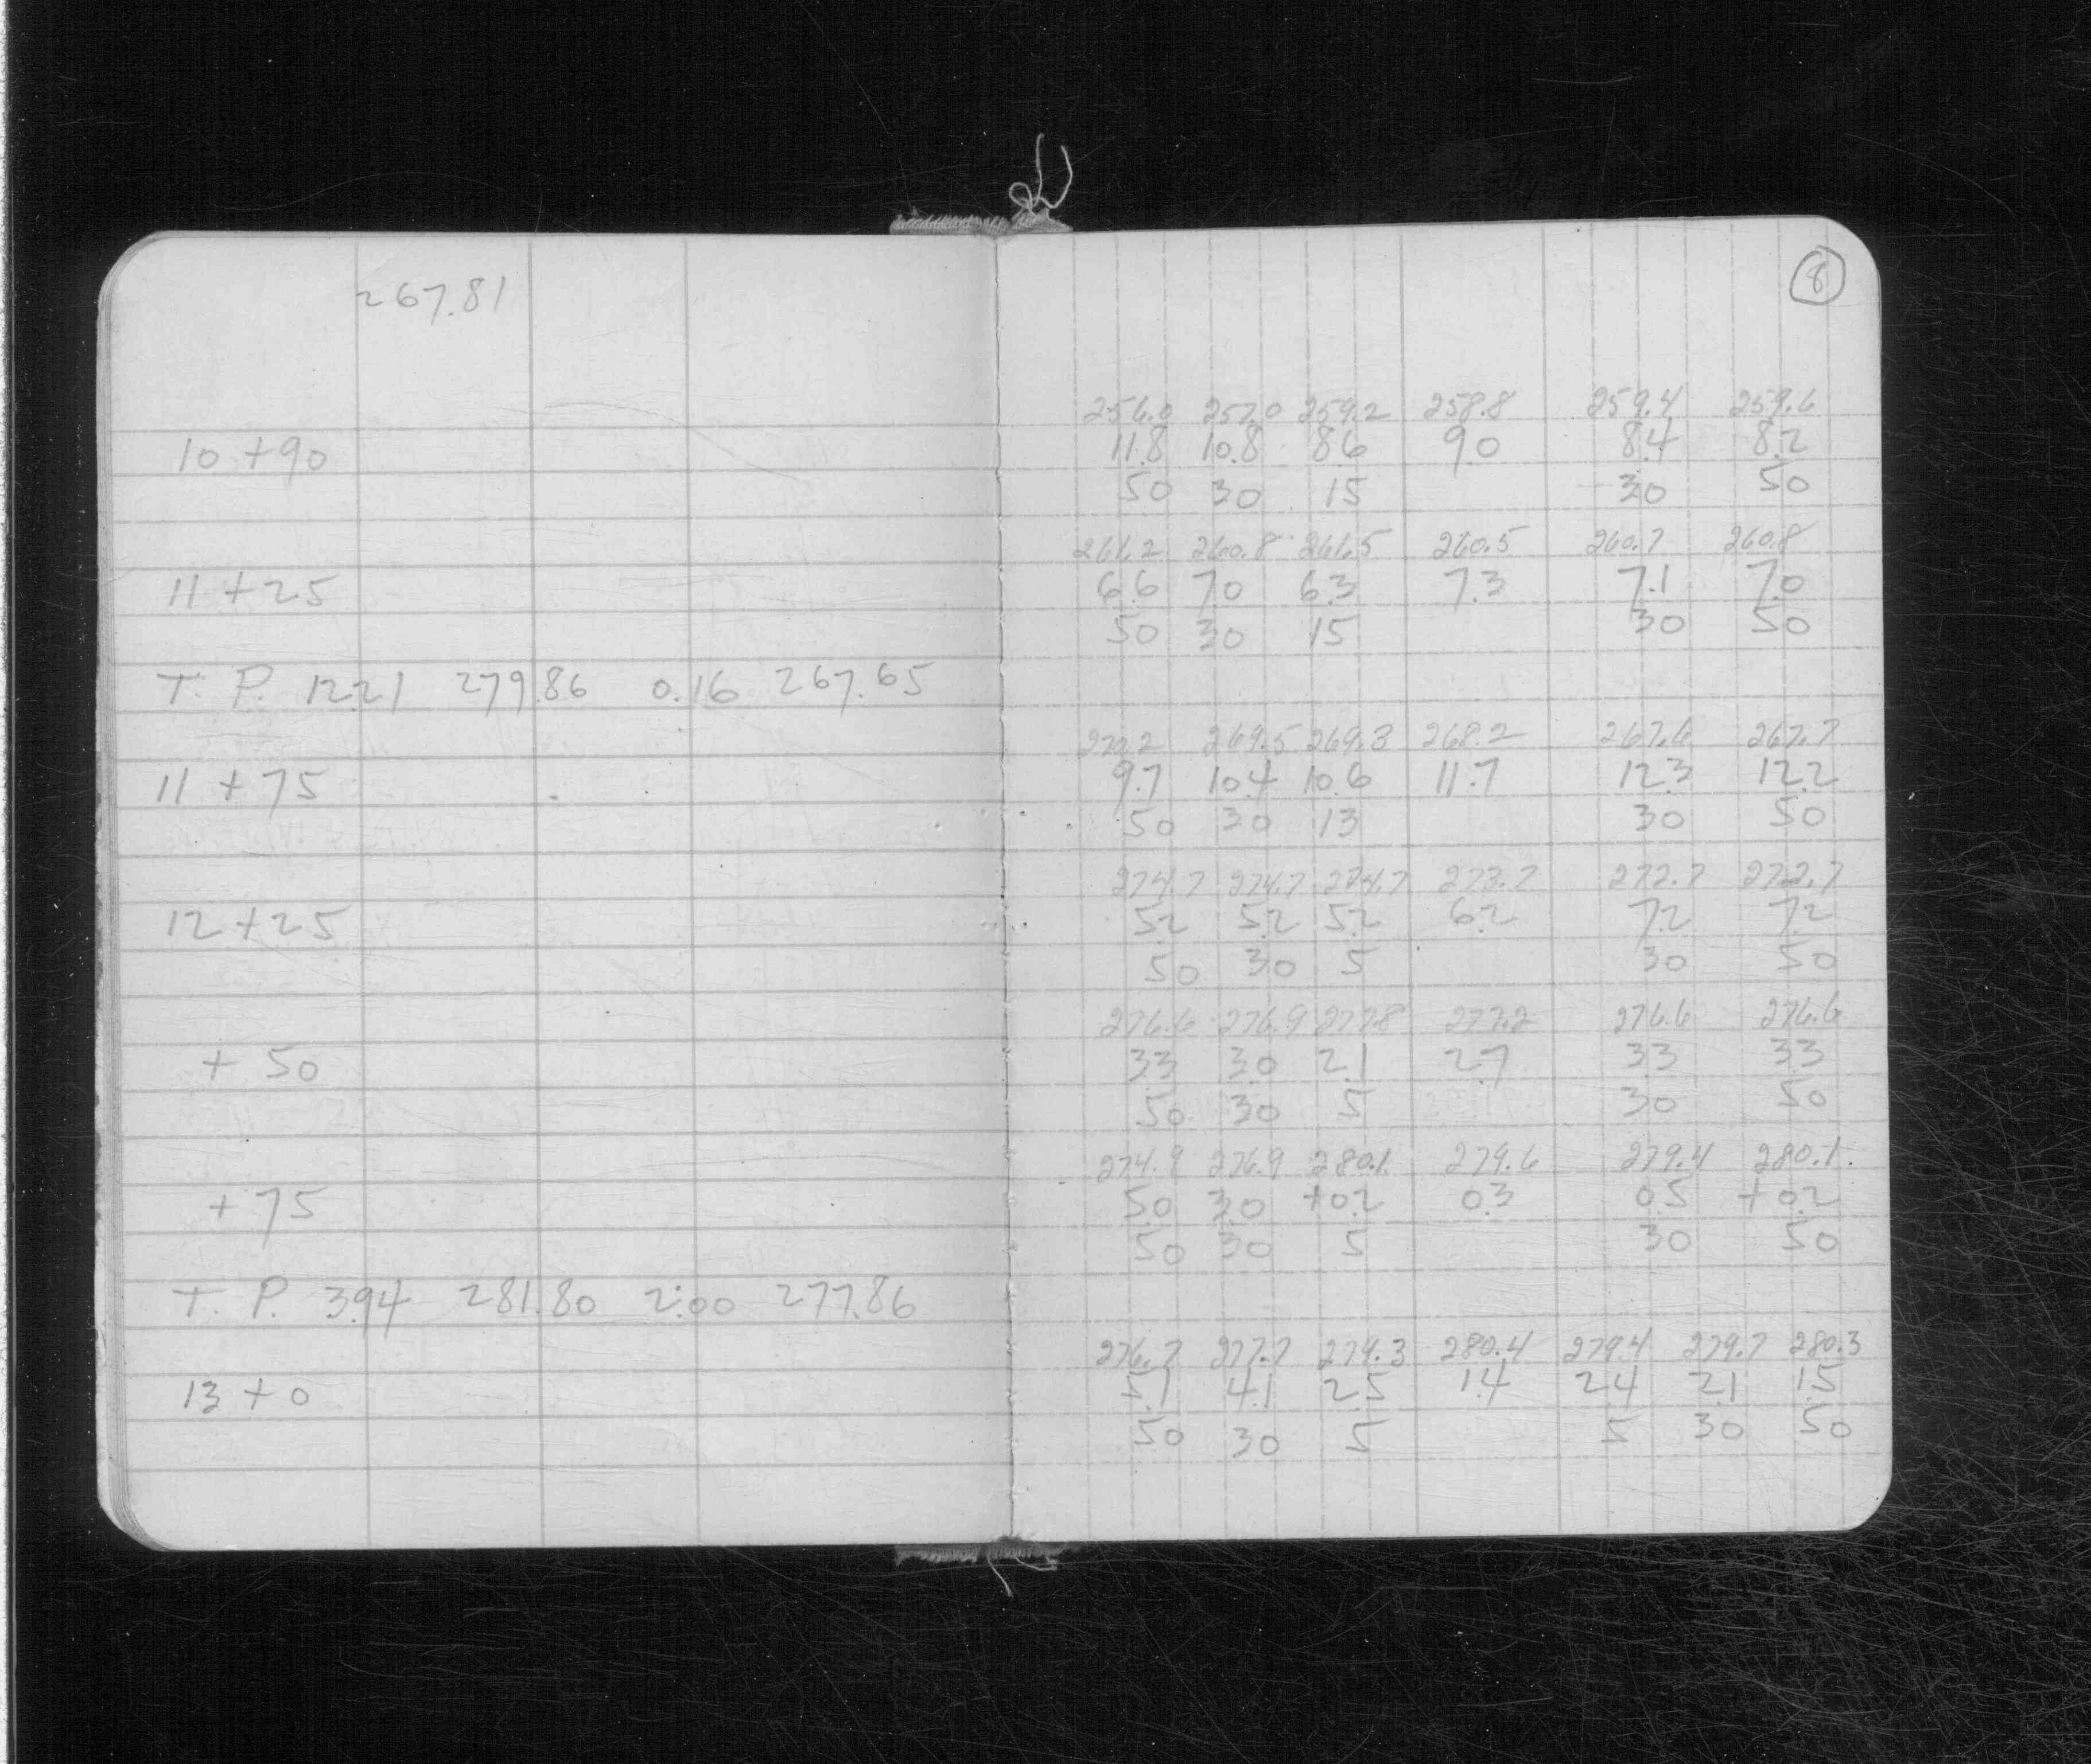 267.81
8
256.0 257.0 259.2 258.8 259.4 259.6
10 + 90 11.8 10.8 8.6 9.0 8.4 8.2
50 30 15 30 50
261.2 260.8 261.5 260.5 260.7 260.8
11 + 25 6.6 7.0 6.3 7.3 7.1 7.0
50 30 15 30 50
T. P. 12.21 279.86 0.16 267.65
270.2 269.5 269.3 268.2 267.6 267.7
11 + 75 9.7 10.4 10.6 11.7 12.3 12.2
50 30 13 30 50
274.7 274.7 274.7 273.7 272.7 272.7
12 + 25 5.2 5.2 5.2 6.2 7.2 7.2
50 30 5 30 50
276.6 276.9 277.8 277.2 276.6 276.6
+ 50 3.3 3.0 2.1 2.7 3.3 3.3
50 30 5 30 50
274.9 276.9 280.1 279.6 279.4 280.1
+ 75 5.0 3.0 +0.2 0.3 0.5 +0.2
50 30 5 30 50
T. P. 3.94 281.80 2.00 277.86
276.7 277.7 279.3 280.4 279.4 279.7 280.3
13 + 0 5.1 4.1 2.5 1.4 2.4 2.1 1.5
50 30 5 5 30 50